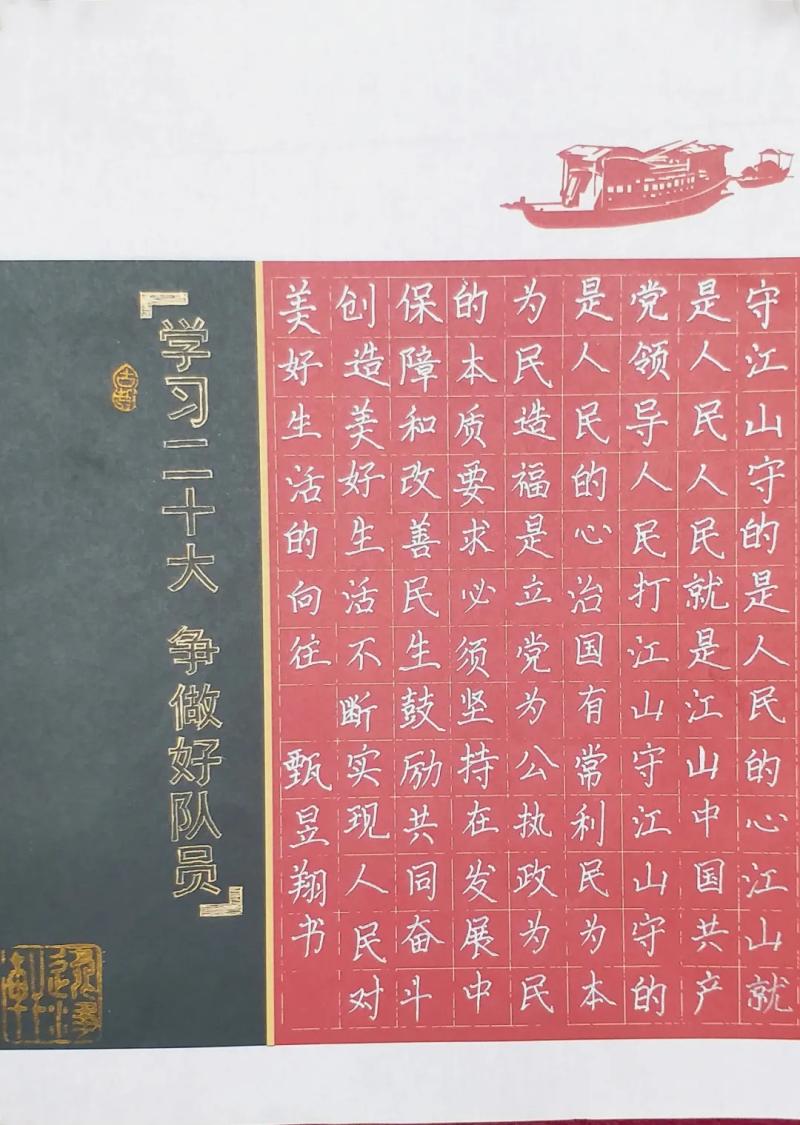 守江山守的是人民的心江山就
是人民人民就是江山中国共产
党领导人民打江山守江山守的
是人民的心治国有常利民为本
为民造福是立党为公执政为民
的本质要求必须坚持在发展中
保障和改善民生鼓励共同奋斗
创造美好生活不断实现人民对
美好生活的向往 甄昱翔书
「学习二十大 争做好队员」